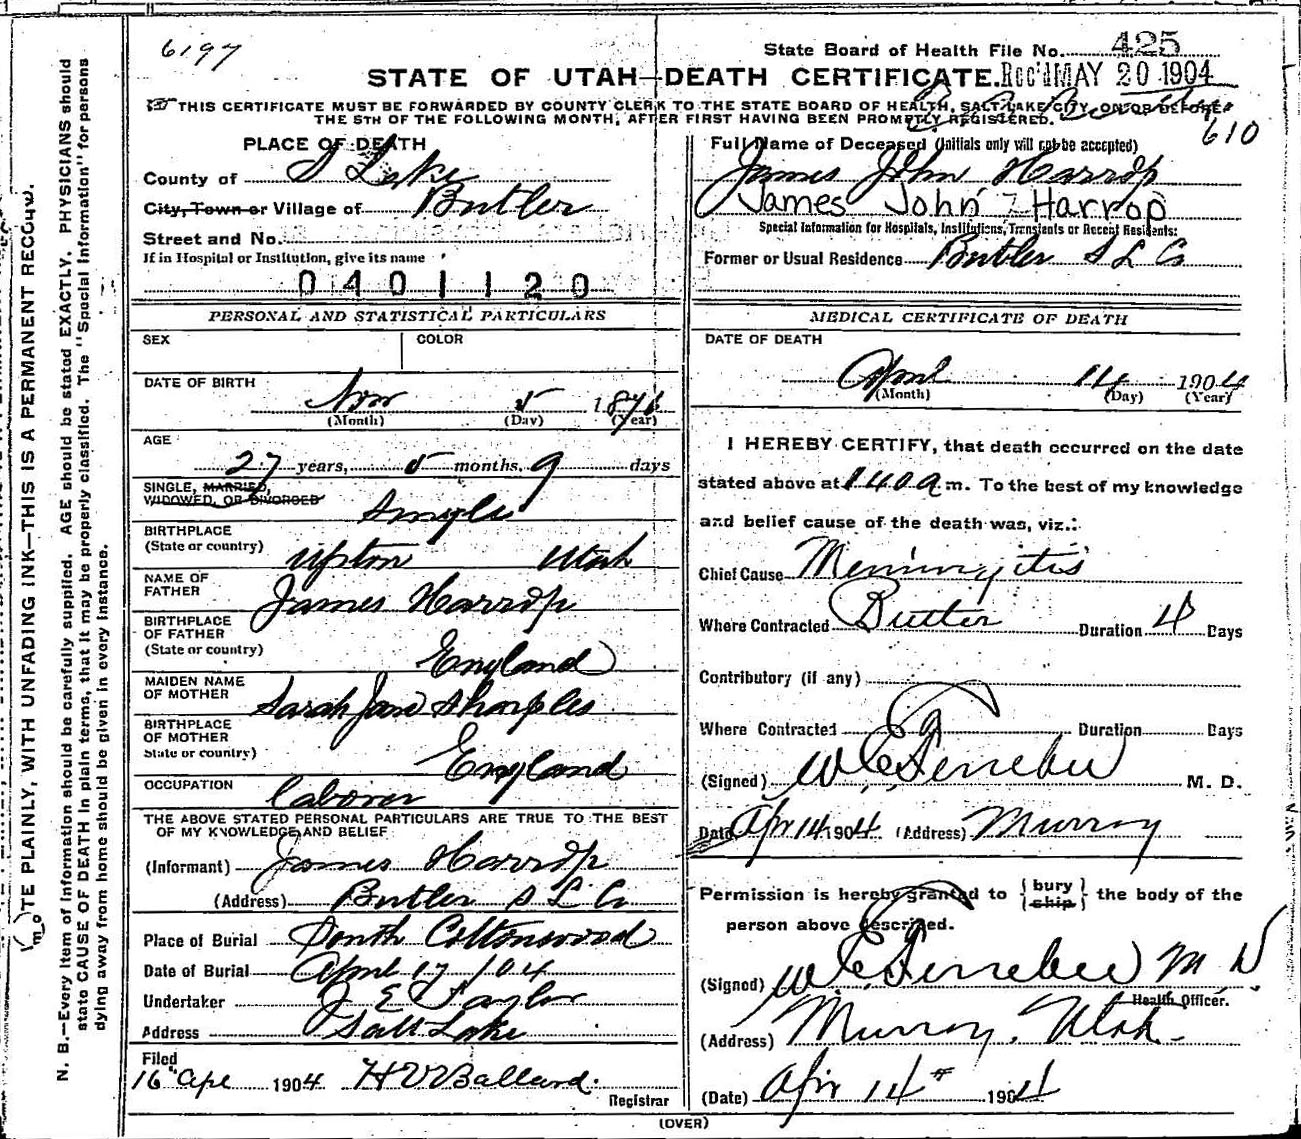 6197
State Board of Health File No. 425
STATE OF UTAH—DEATH CERTIFICATE. Rec'd MAY 20 1904
THIS CERTIFICATE MUST BE FORWARDED BY COUNTY CLERK TO THE STATE BOARD OF HEALTH, SALT LAKE CITY, ON OR BEFORE
THE 5TH OF THE FOLLOWING MONTH, AFTER FIRST HAVING BEEN PROMPTLY REGISTERED.
610
PLACE OF DEATH
County of S Lake
City, Town or Village of Butler
Street and No.
If in Hospital or Institution, give its name
0401120
Full Name of Deceased (Initials only will not be accepted)
James John Harrop
James John Harrop
Special Information for Hospitals, Institutions, Transients or Recent Residents:
Former or Usual Residence Butler S L Co
PERSONAL AND STATISTICAL PARTICULARS
SEX
COLOR
DATE OF BIRTH
Nov 5 1876
(Month) (Day) (Year)
AGE
27 years, 5 months, 9 days
SINGLE, MARRIED,
WIDOWED, OR DIVORCED
Single
BIRTHPLACE
(State or country)
Upton Utah
NAME OF
FATHER
James Harrop
BIRTHPLACE
OF FATHER
(State or country)
England
MAIDEN NAME
OF MOTHER
Sarah Jane Sharples
BIRTHPLACE
OF MOTHER
State or country)
England
OCCUPATION
laborer
THE ABOVE STATED PERSONAL PARTICULARS ARE TRUE TO THE BEST
OF MY KNOWLEDGE AND BELIEF
(Informant) James Harrop
(Address) Butler S L Co
Place of Burial South Cottonwood
Date of Burial April 17 / 04
Undertaker J E Taylor
Address Salt Lake
Filed
16" Apl 1904 H V Ballard.
Registrar
MEDICAL CERTIFICATE OF DEATH
DATE OF DEATH
April 14 1904
(Month) (Day) (Year)
I HEREBY CERTIFY, that death occurred on the date
stated above at 140 a m. To the best of my knowledge
and belief cause of the death was, viz.:
Chief Cause Meningitis
Where Contracted Butler Duration 4 Days
Contributory (if any)
Where Contracted Duration Days
(Signed) M. D.
Date Apr 14 1904 (Address) Murray
Permission is hereby granted to {bury ship} the body of the
person above described.
(Signed) M D
Health Officer.
(Address) Murray, Utah.
(Date) Apr 14" 1904
(OVER)
TE PLAINLY, WITH UNFADING INK—THIS IS A PERMANENT RECORD.
N. B.—Every item of information should be carefully supplied. AGE should be stated EXACTLY. PHYSICIANS should
state CAUSE OF DEATH in plain terms, that it may be properly classified. The "Special Information" for persons
dying away from home should be given in every instance.